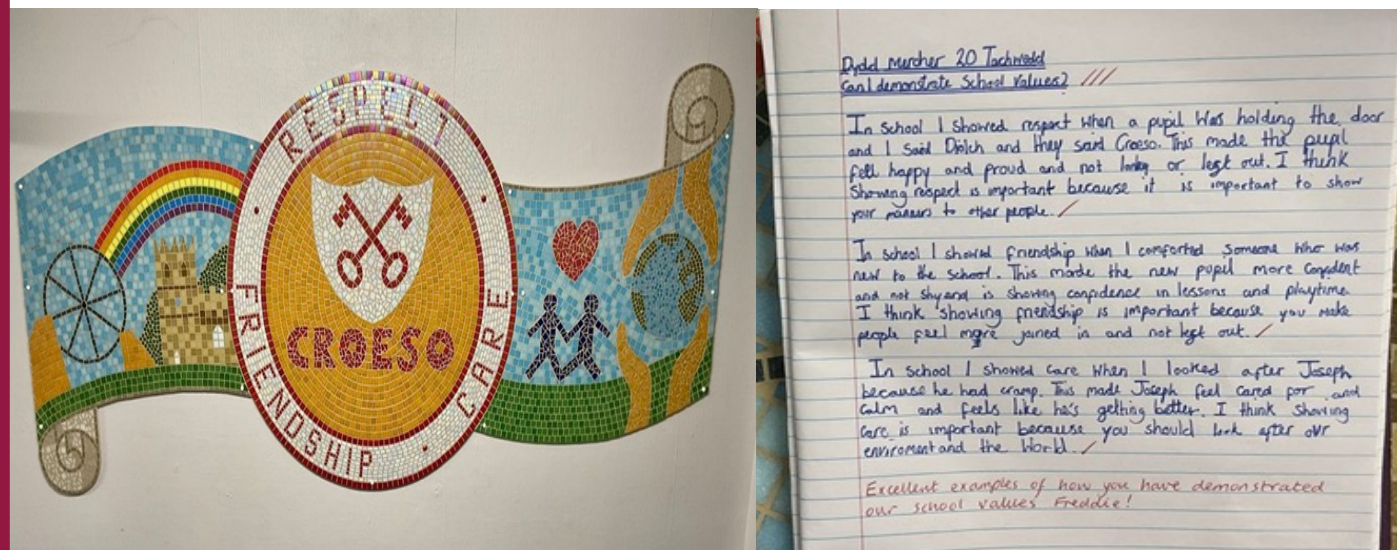 RESPECT
FRIENDSHIP
CARE
CROESO
Dydd Mercher 20 Tachwedd
Can I demonstrate School Values?
In school I showed respect when a pupil was holding the door
and I said Diolch and they said Croeso. This made the pupil
fell happy and proud and not or left out. I think
Showing respect is important because it is important to show
your manners to other people.
In school I showed friendship when I comforted someone who was
new to the school. This made the new pupil more confident
and not shy and is showing confidence in lessons and playtime.
I think showing friendship is important because you make
people feel more joined in and not left out.
In school I showed care when I looked after Joseph
because he had cramp. This made Joseph feel cared for and
calm and feels like he's getting better. I think showing
care is important because you should look after our
enviroment and the World.
Excellent examples of how you have demonstrated
our school values Freddie!